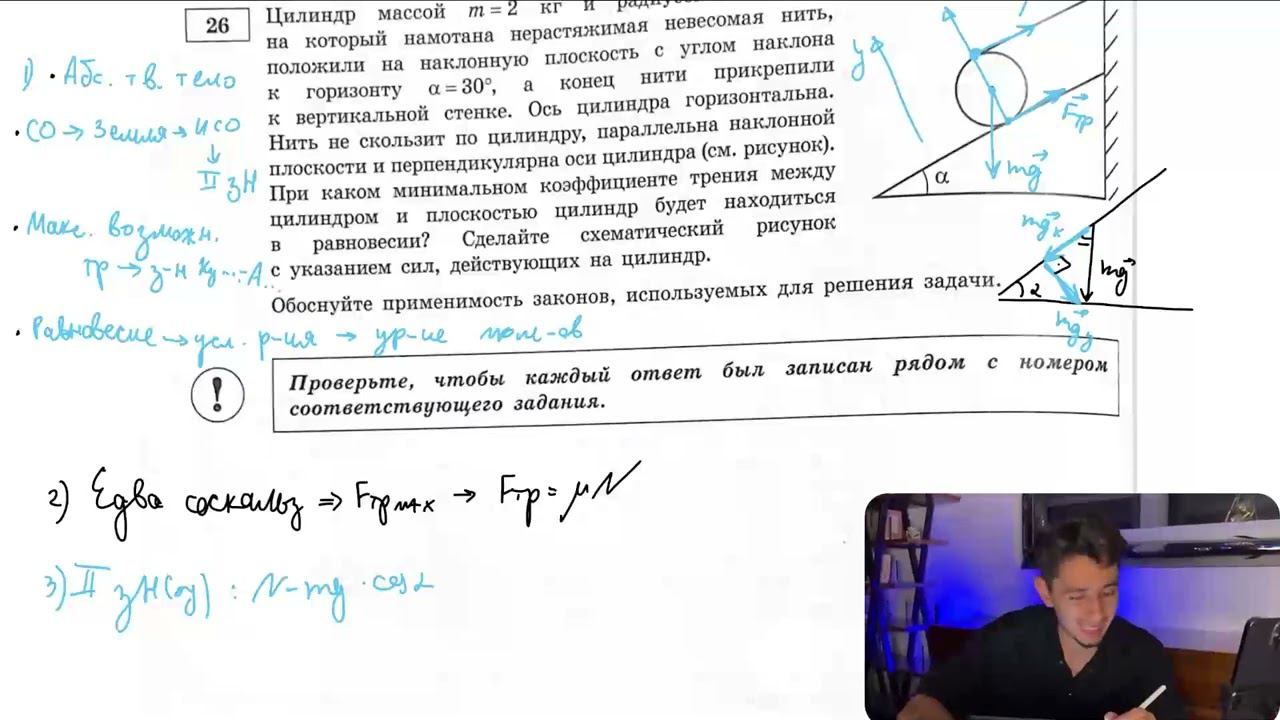 26
Цилиндр массой m = 2 кг и
на который намотана нерастяжимая невесомая нить,
положили на наклонную плоскость с углом наклона
к горизонту α = 30°, а конец нити прикрепили
к вертикальной стенке. Ось цилиндра горизонтальна.
Нить не скользит по цилиндру, параллельна наклонной
плоскости и перпендикулярна оси цилиндра (см. рисунок).
При каком минимальном коэффициенте трения между
цилиндром и плоскостью цилиндр будет находиться
в равновесии? Сделайте схематический рисунок
с указанием сил, действующих на цилиндр.
Обоснуйте применимость законов, используемых для решения задачи.
1) • Абс. тв. тело
• СО → Земля → ИСО
↓
II зН
• Макс. возможн.
тр → з-н Ку...-А..
• Равновесие → усл. р-ия → ур-ие мом-ов
y
Fтр
mg
α
mgx
mg
α
mgy
!
Проверьте, чтобы каждый ответ был записан рядом с номером
соответствующего задания.
2) Едва соскальз ⇒ Fтр max → Fтр = μN
3) II зН(oy) : N - mg · cosα